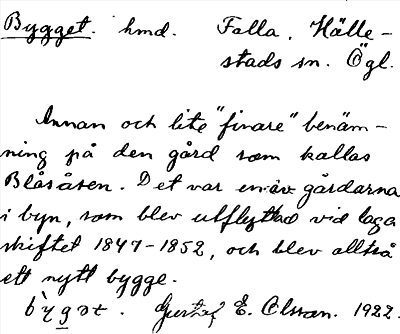 Bygget. hmd. Falla, Hälle-
stads sn. Ögl.
Annan och lite "finare" benäm-
ning på den gård som kallas
Blåsåsen. Det var en av gårdarna
i byn, som blev utflyttad vid laga
skiftet 1847-1852, och blev alltså
ett nytt bygge.
Gustaf E. Olsson. 1922.